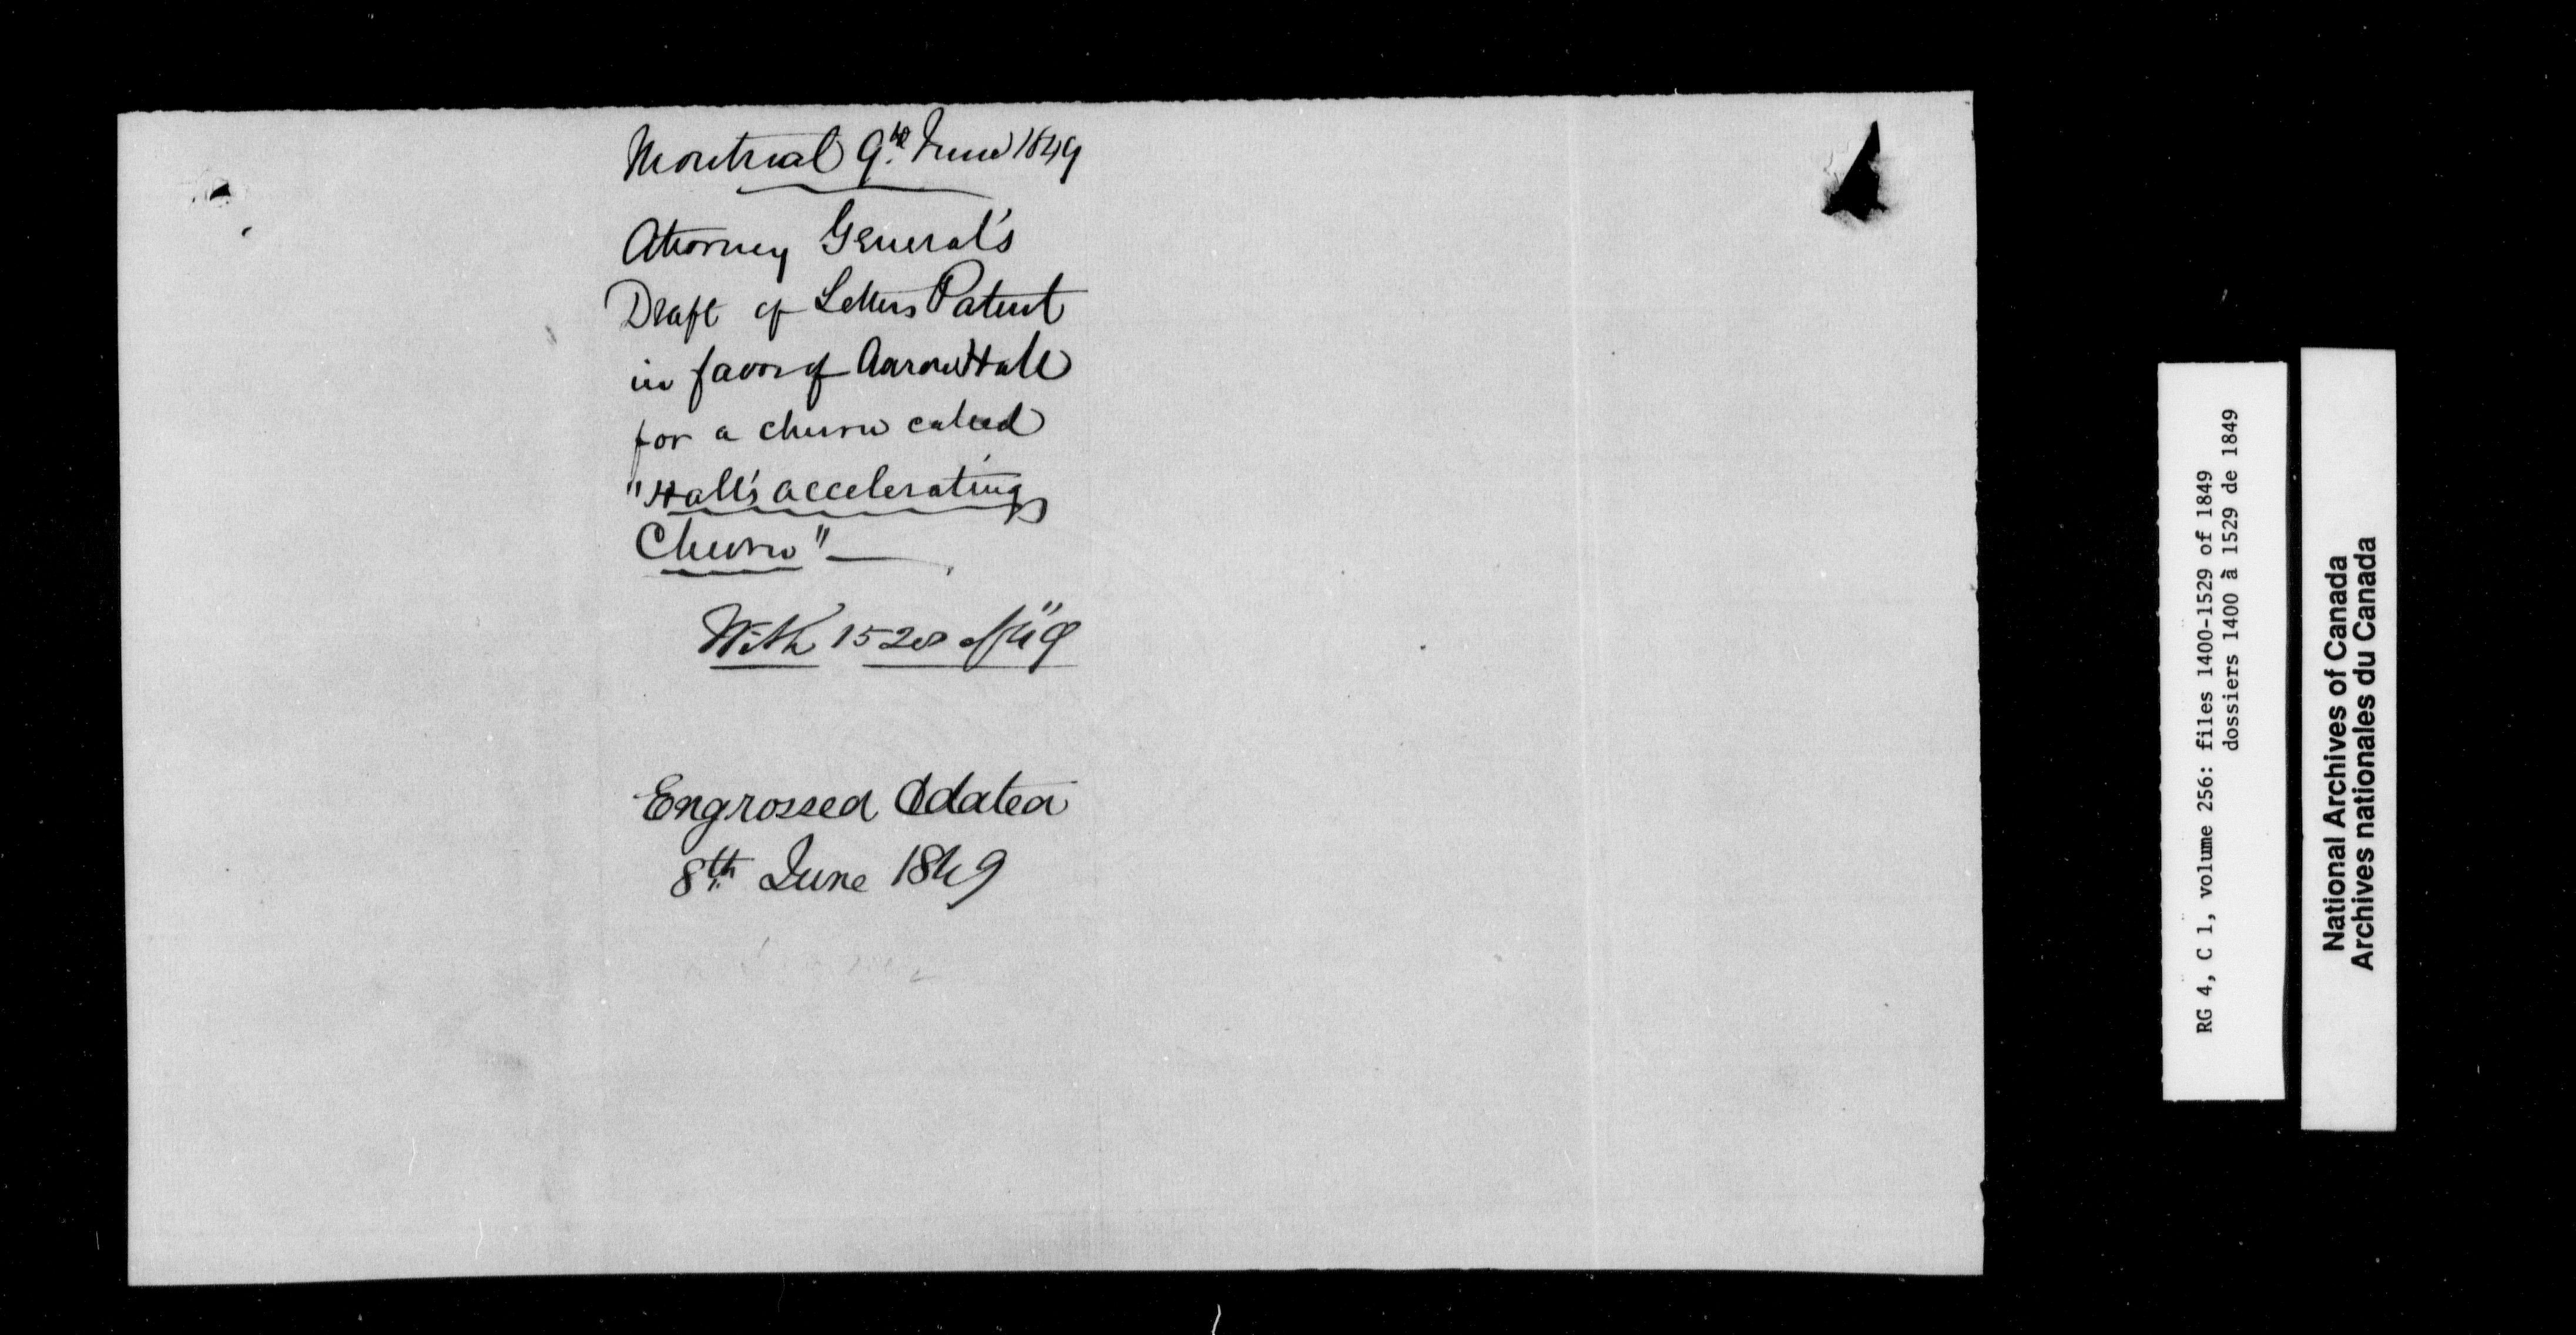 Montreal 9th June 1849
Attorney General's
Draft of Letters Patent
in favor of Aaron Hall
for a churn called
"Hall's accelerating
Churn"
With 1528 of "49
Engrossed & dated
8th June 1849
RG 4, C 1, volume 256: files 1400-1529 of 1849
dossiers 1400 à 1529 de 1849
National Archives of Canada
Archives nationales du Canada